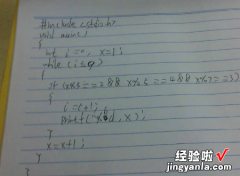 #include <stdio.h>
void main()
{
int i=0, x=1;
while (i≤9)
{
if (x%3==2&&x%5==4&&x%7==5)
{
i=i+1;
printf("%d,x);
}
x=x+1;
}
}
验啦
jingyanla.com